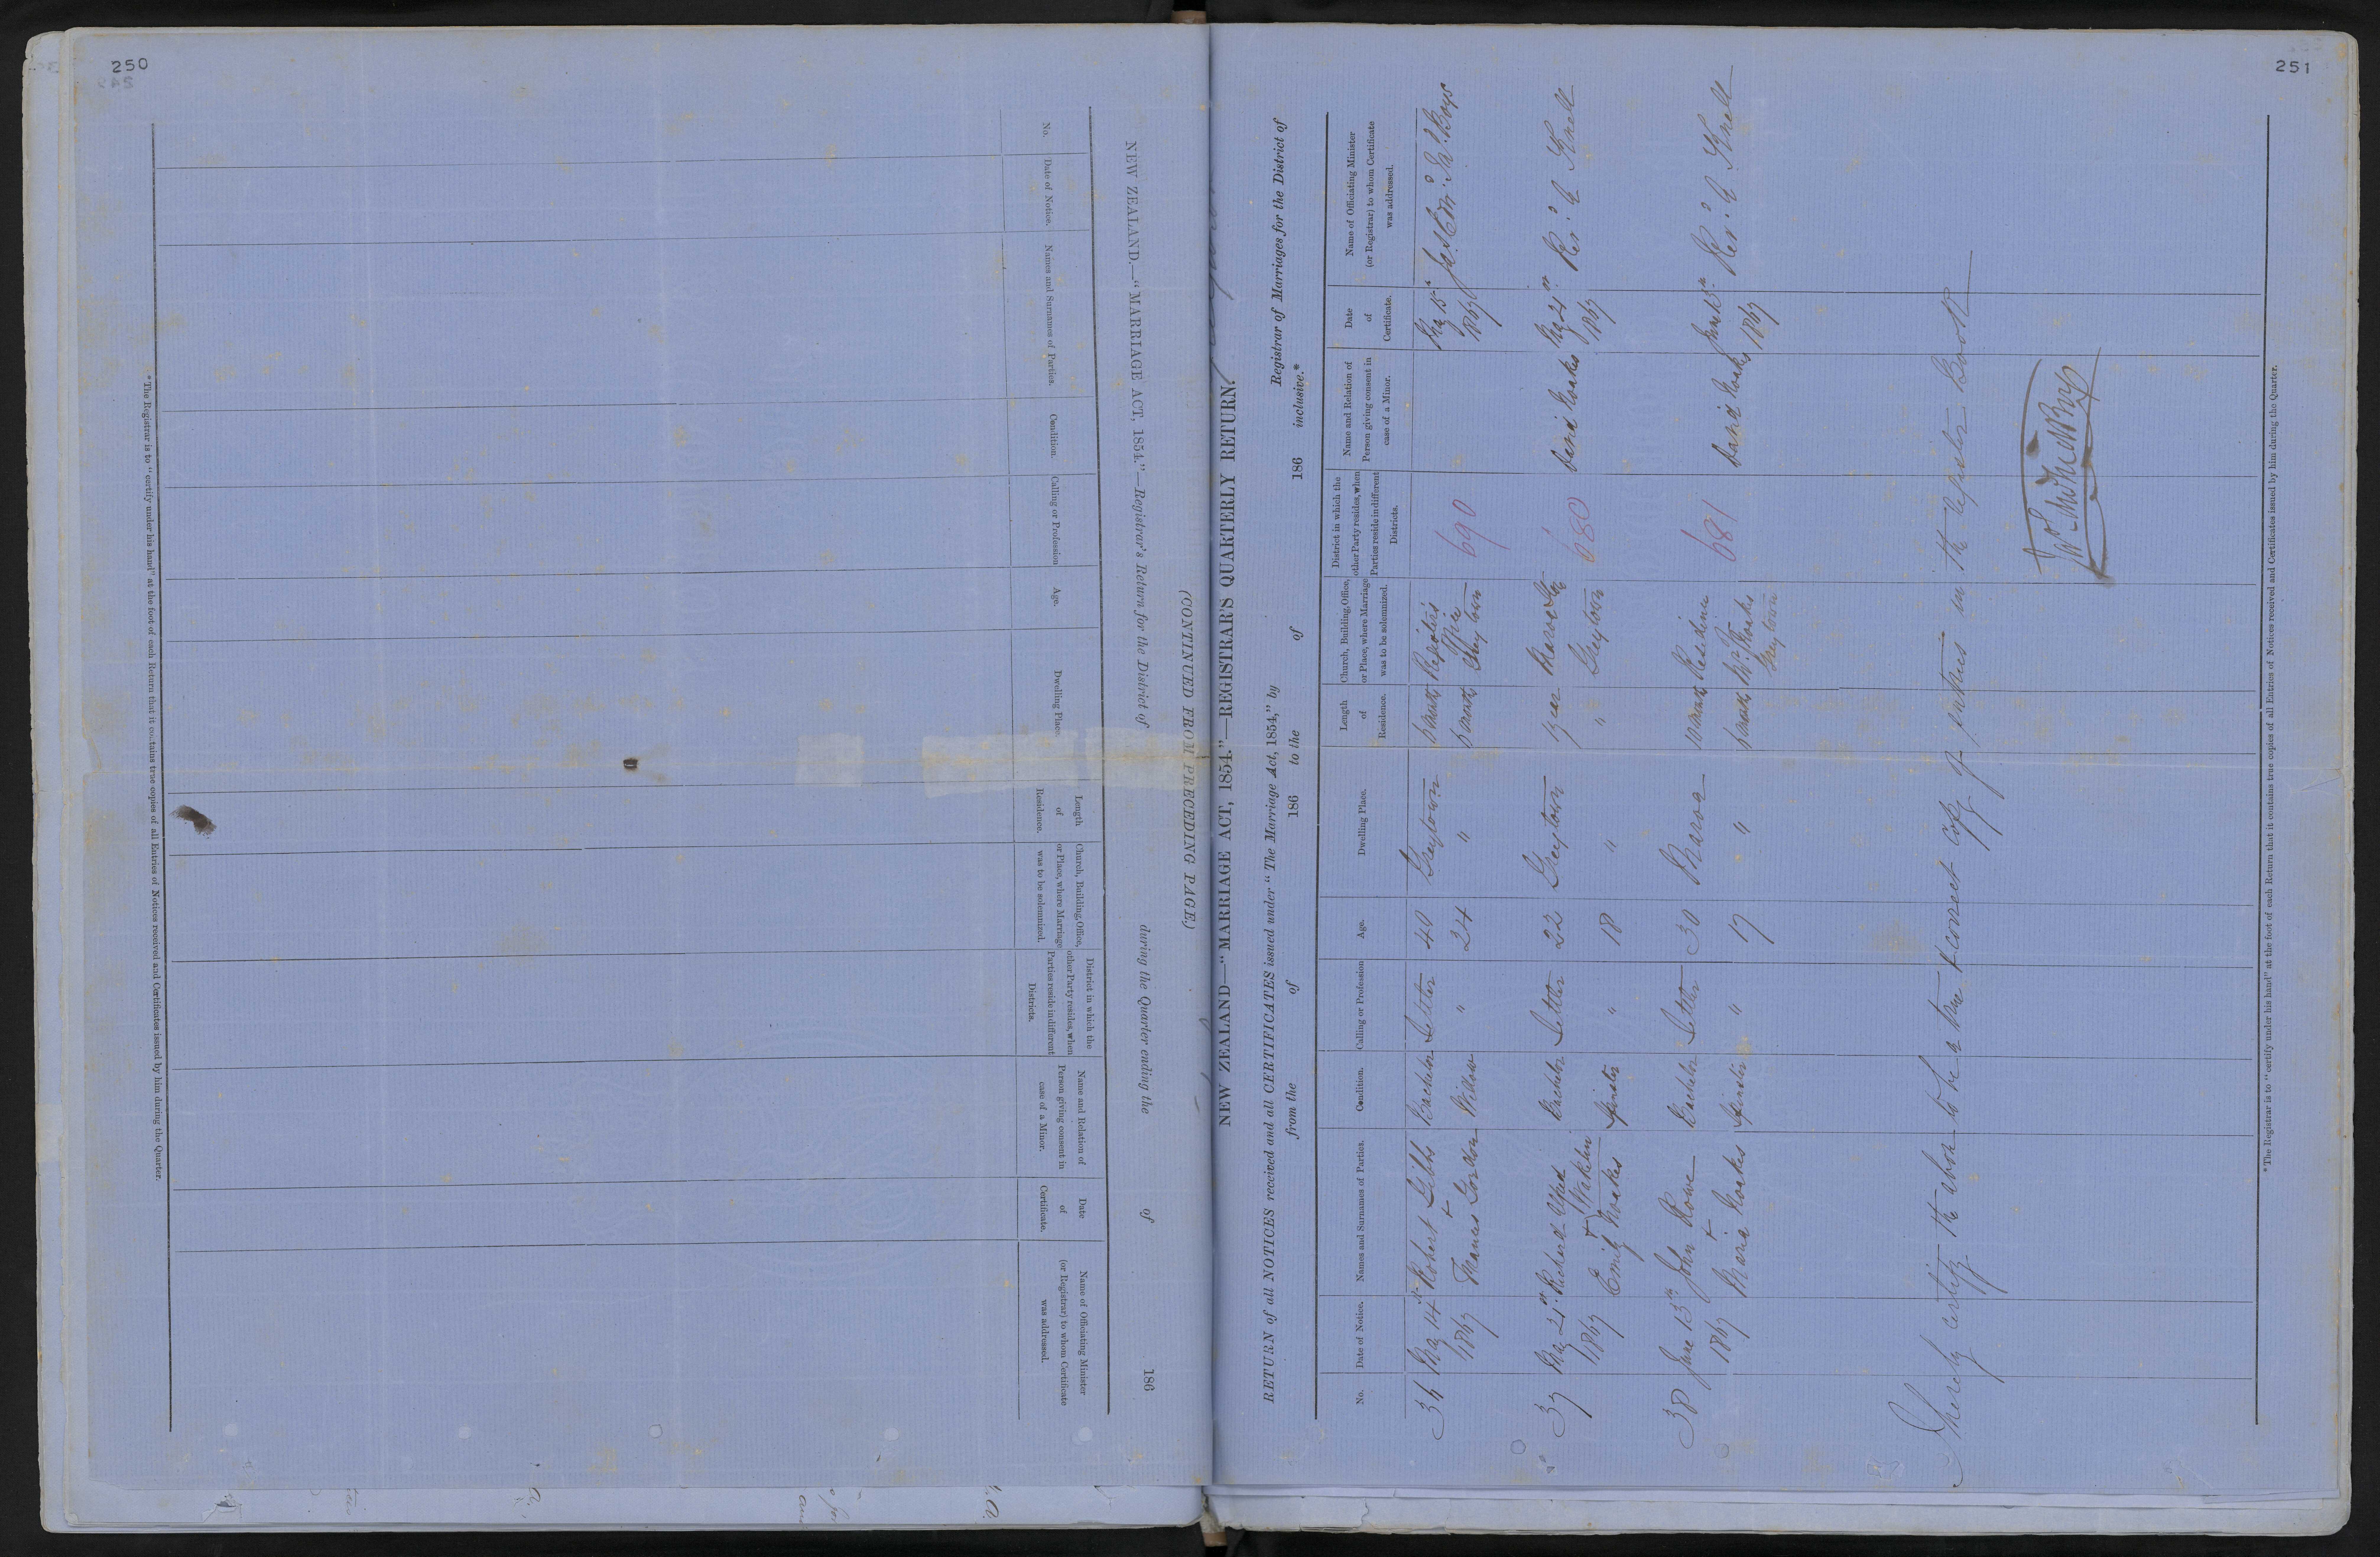 250
(CONTINUED FROM PRECEDING PAGE.)
NEW ZEALAND.—"MARRIAGE ACT, 1854."—Registrar's Return for the District of during the Quarter ending the of 186
No.
Date of Notice.
Names and Surnames of Parties.
Condition.
Calling or Profession
Age.
Dwelling Place.
Length
of
Residence.
Church, Building, Office,
or Place, where Marriage
was to be solemnized.
District in which the
other Party resides, when
Parties reside in different
Districts.
Name and Relation of
Person giving consent in
case of a Minor.
Date
of
Certificate.
Name of Officiating Minister
(or Registrar) to whom Certificate
was addressed.
* The Registrar is to "certify under his hand" at the foot of each Return that it contains true copies of all Entries of Notices received and Certificates issued by him during the Quarter.
251
NEW ZEALAND—"MARRIAGE ACT, 1854."—REGISTRAR'S QUARTERLY RETURN.
RETURN of all NOTICES received and all CERTIFICATES issued under "The Marriage Act, 1854," by Registrar of Marriages for the District of
from the of 186 to the of 186 inclusive.*
No.
Date of Notice.
Names and Surnames of Parties.
Condition.
Calling or Profession
Age.
Dwelling Place.
Length
of
Residence.
Church, Building, Office,
or Place, where Marriage
was to be solemnized.
District in which the
other Party resides, when
Parties reside in different
Districts.
Name and Relation of
Person giving consent in
case of a Minor.
Date
of
Certificate.
Name of Officiating Minister
(or Registrar) to whom Certificate
was addressed.
36 May 14 Robert Gibbs Bachelor Settler 40 Greytown Registrar's 690 May 15
1867 + Office 1867
Gordon Widow " 34 " Greytown
37 May 21st Richard Alfred Bachelor Settler 22 Greytown 1 year Maroa 680 David Noakes May 21st Revd. A Knell
1867 + Wakelin Greytown 1867
Emily Noakes Spinster " 18 " "
38 June 13th John Rowe Bachelor Settler 30 Maroa Residence 681 David Noakes June 13th Revd. A Knell
1867 + Mr. Noakes 1867
Maria Noakes Spinster " 17 " Greytown
I hereby certify the above to be a true & correct copy of entries in the Register Book
* The Registrar is to "certify under his hand" at the foot of each Return that it contains true copies of all Entries of Notices received and Certificates issued by him during the Quarter.